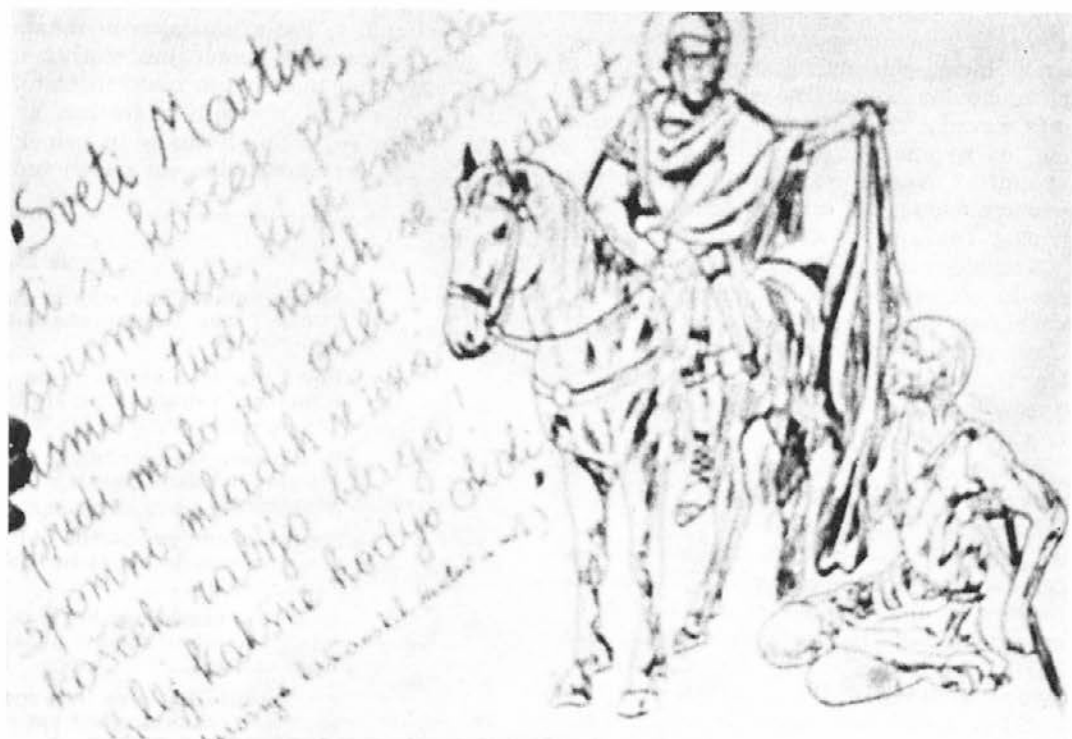 Sveti Martin,
ti si košček plašča dal
siromaku, ki je zmrzoval
usmili tudi naših se deklet,
pridi malo jih odet!
spomni mladih se
košček rabijo blaga!
kakšne hodijo okoli